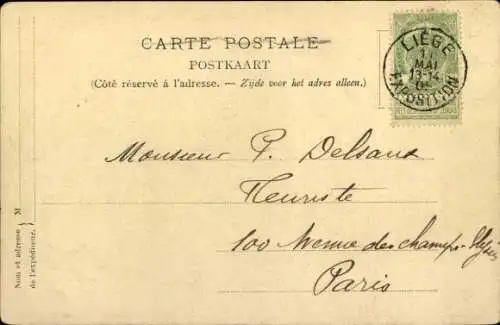 CARTE POSTALE
POSTKAART
(Côté réservé à l'adresse. — Zijde voor het adres alleen.)
LIÉGE
1
MAI
13-14
EXPOSITION
Monsieur P. Delsaux
Fleuriste
100 Avenue des champs-Elysées
Paris
Nom et adresse
de l'expéditeur.
M